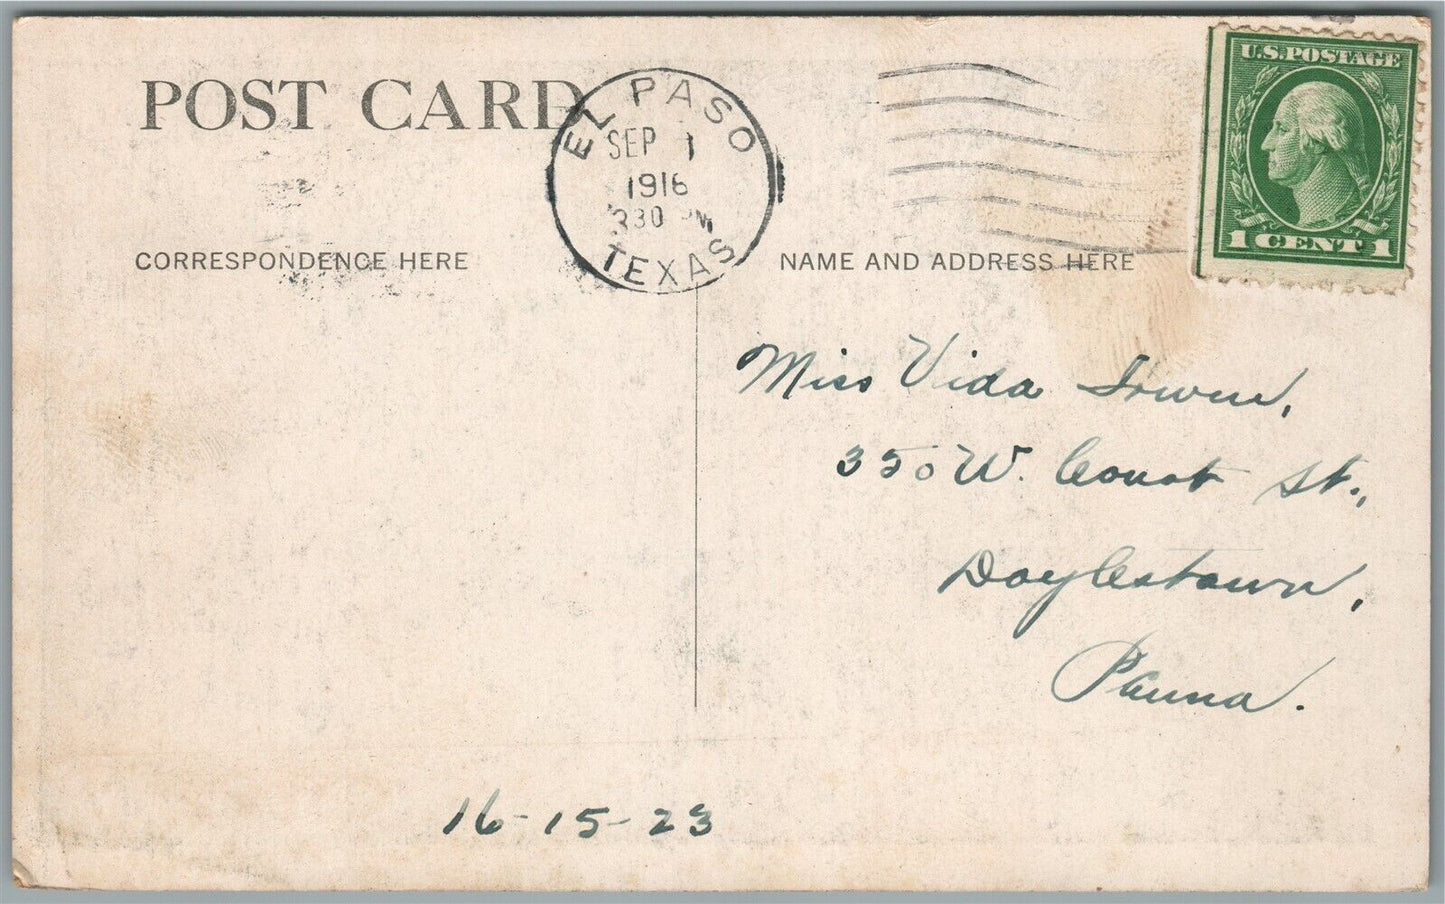 POST CARD
EL PASO
SEP 1
1916
330 PM
TEXAS
U.S. POSTAGE
1 CENT 1
CORRESPONDENCE HERE
NAME AND ADDRESS HERE
Miss Vida Irwin,
350 W. Court St.,
Doylestown,
Penna.
16-15-23